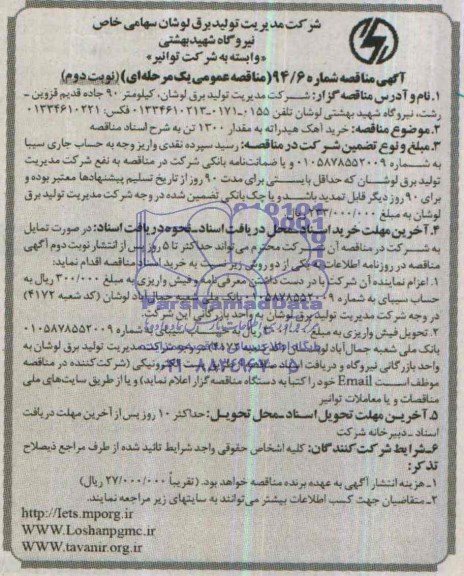 شرکت مدیریت تولید برق لوشان سهامی خاص
نیروگاه شهید بهشتی
«وابسته به شرکت توانیر»
آگهی مناقصه شماره ۹۴/۶ (مناقصه عمومی یک مرحله‌ای) (نوبت دوم)
۱ـ نام و آدرس مناقصه گزار: شرکت مدیریت تولید برق لوشان، کیلومتر ۹۰ جاده قدیم قزوین ـ
رشت، نیروگاه شهید بهشتی لوشان تلفن ۰۱۵۵-۰۱۷۱-۰۱۳۳۴۶۱۰۳۱۳ فکس: ۰۱۳۳۴۶۱۰۲۲۱
۲ـ موضوع مناقصه: خرید آهک هیدراته به مقدار ۱۳۰۰ تن به شرح اسناد مناقصه
۳ـ مبلغ و نوع تضمین شرکت در مناقصه: رسید سپرده نقدی واریز وجه به حساب جاری سیبا
به شماره ۰۱۰۵۸۷۸۵۵۲۰۰۹ و یا ضمانت‌نامه بانکی شرکت در مناقصه به نفع شرکت مدیریت
تولید برق لوشان که حداقل بایستی برای مدت ۹۰ روز از تاریخ تسلیم پیشنهادها معتبر بوده و
برای ۹۰ روز دیگر قابل تمدید باشد و یا چک بانکی تضمین شده در وجه شرکت مدیریت تولید برق
لوشان به مبلغ ریال
۴ـ آخرین مهلت خرید اسناد ـ محل دریافت اسناد ـ نحوه دریافت اسناد: در صورت تمایل
به شرکت در مناقصه آن شرکت محترم می‌تواند حداکثر تا ۵ روز پس از انتشار نوبت دوم آگهی
مناقصه در روزنامه اطلاعات به یکی از دو روش زیر نسبت به خرید اسناد مناقصه اقدام نماید:
۱ـ اعزام نماینده آن شرکت با در دست داشتن معرفی نامه و فیش واریزی به مبلغ ۳۰۰/۰۰۰ ریال به
حساب سیبای به شماره ۰۱۰۵۸۷۸۵۵۲۰۰۹ بانک ملی شعبه جمال‌آباد لوشان (کد شعبه ۴۱۷۲)
در وجه شرکت مدیریت تولید برق لوشان به واحد بازرگانی این شرکت.
۲ـ تحویل فیش واریزی به مبلغ شماره ۰۱۰۵۸۷۸۵۵۲۰۰۹
بانک ملی شعبه جمال‌آباد لوشان شرکت مدیریت تولید برق لوشان به
واحد بازرگانی نیروگاه و دریافت اسناد الکترونیکی (شرکت کننده در مناقصه
موظف است Email خود را کتبا به دستگاه مناقصه گزار اعلام نماید) و یا از طریق سایت‌های ملی
مناقصات و یا معاملات توانیر
۵ـ آخرین مهلت تحویل اسناد ـ محل تحویل: حداکثر ۱۰ روز پس از آخرین مهلت دریافت
اسناد ـ دبیرخانه شرکت
۶ـ شرایط شرکت کنندگان: کلیه اشخاص حقوقی واجد شرایط تائید شده از طرف مراجع ذیصلاح
تذکر:
۱ـ هزینه انتشار آگهی به عهده برنده مناقصه خواهد بود. (تقریباً ۲۷/۰۰۰/۰۰۰ ریال)
۲ـ متقاضیان جهت کسب اطلاعات بیشتر می‌توانند به سایتهای زیر مراجعه نمایند.
http://Iets.mporg.ir
WWW.Loshanpgmc.ir
WWW.tavanir.org.ir
ParsNamadData